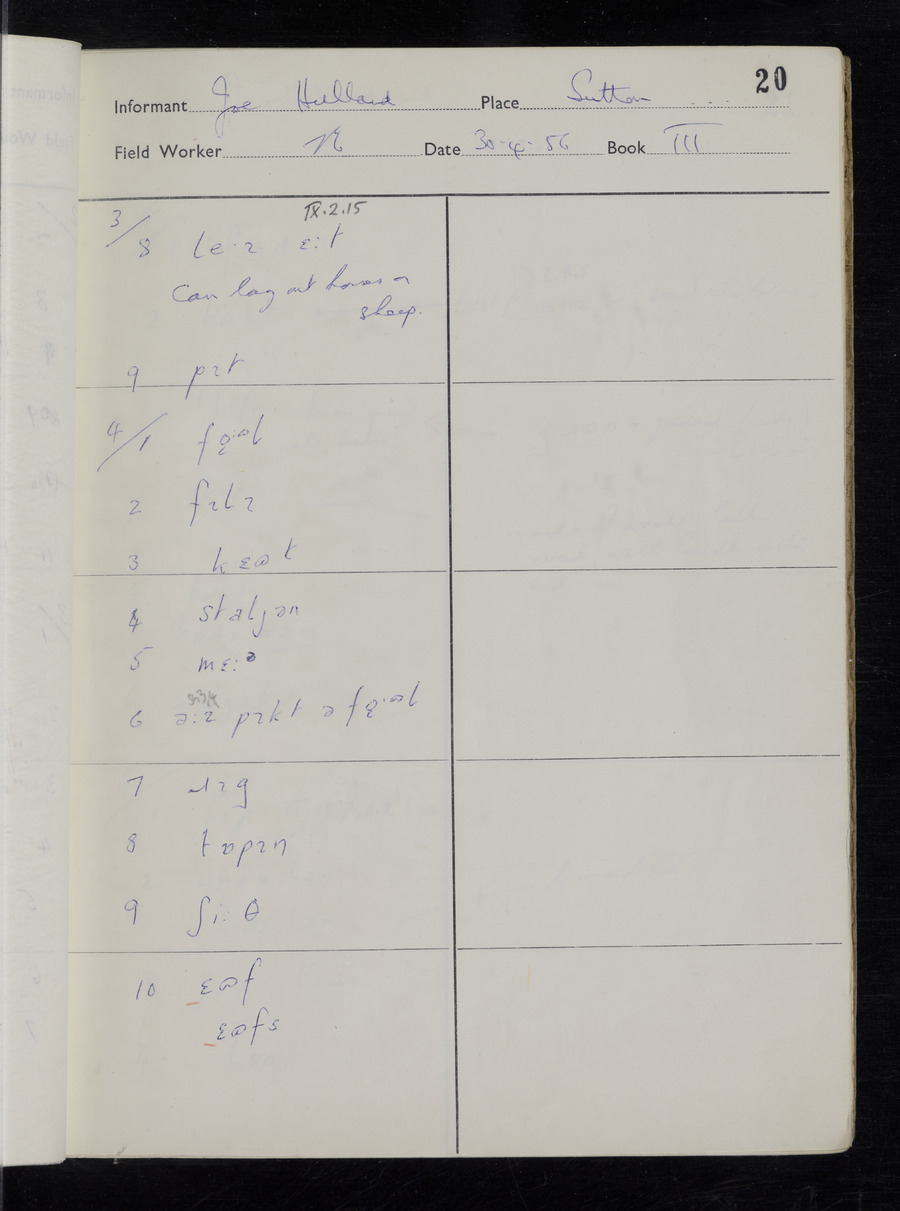 20
Informant Joe Hulland Place Sutton
Field Worker Date 30-4-56 Book III
IX.2.15
3/8 leːɪ ɛːt
Can lay out horses or
sheep.
9 pɪt
4/1 fo̜ːəl
2 fɪlɪ
3 kɛət
4 staljən
5 mɛːə
6 əːɪ pɪkt ə fo̜ːəl
7 ɹɪg
8 tɒpɪn
9 ʃiːθ
10 ɛəf
ɛəfs